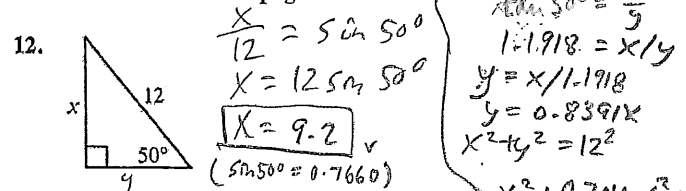 12.
x
12
50°
y
x/12 = sin 50°
x = 12 sin 50°
x = 9.2
(sin 50° = 0.7660)
1.1918 = x/y
y = x/1.1918
y = 0.8391x
x²+y² = 12²